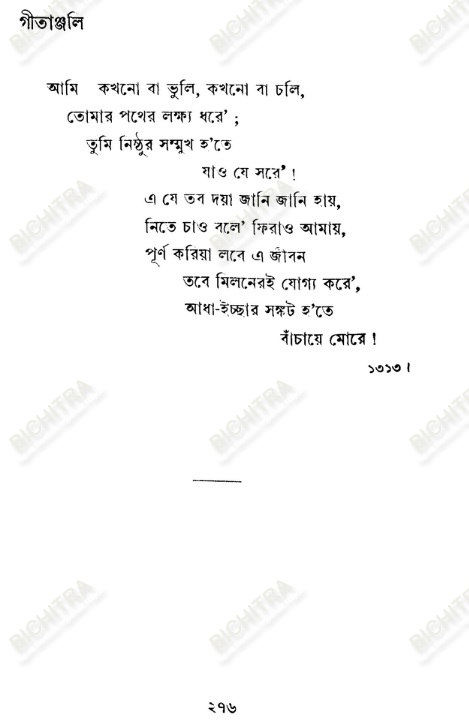 গীতাঞ্জলি
আমি কখনো বা ভুলি, কখনো বা চলি,
তোমার পথের লক্ষ্য ধরে' ;
তুমি নিষ্ঠুর সম্মুখ হ'তে
যাও যে সরে' !
এ যে তব দয়া জানি জানি হায়,
নিতে চাও বলে' ফিরাও আমায়,
পূর্ণ করিয়া লবে এ জীবন
তবে মিলনেরই যোগ্য করে',
আধা-ইচ্ছার সঙ্কট হ'তে
বাঁচায়ে মোরে !
১৩১৩।
২৭৬
BICHITRA
BICHITRA
BICHITRA
BICHITRA
BICHITRA
BICHITRA
BICHITRA
BICHITRA
BICHITRA
BICHITRA
BICHITRA
BICHITRA